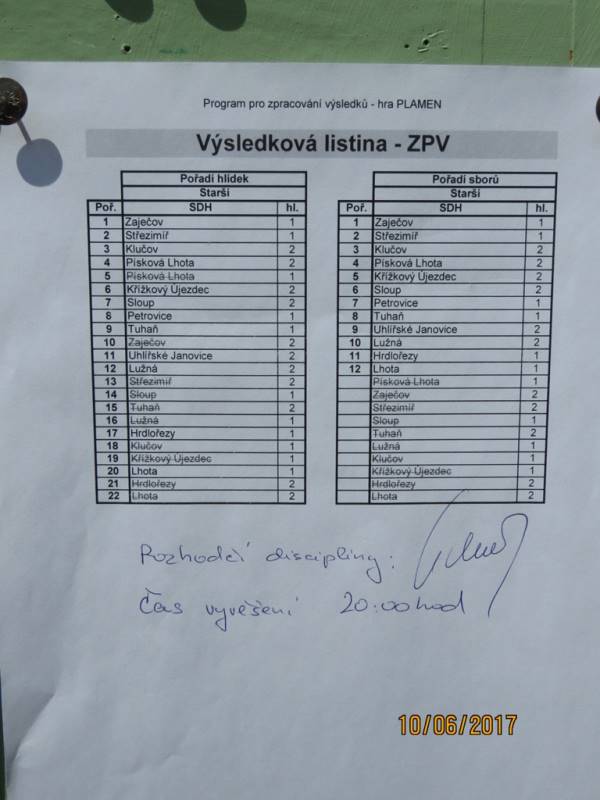 Program pro zpracování výsledků - hra PLAMEN
Výsledková listina - ZPV
Pořadí hlídek
Starší
Poř. SDH hl.
1 Zaječov 1
2 Střezimíř 1
3 Klučov 2
4 Písková Lhota 2
5 Písková Lhota 1
6 Křížkový Újezdec 2
7 Sloup 2
8 Petrovice 1
9 Tuhaň 1
10 Zaječov 2
11 Uhlířské Janovice 2
12 Lužná 2
13 Střezimíř 2
14 Sloup 1
15 Tuhaň 2
16 Lužná 1
17 Hrdlořezy 1
18 Klučov 1
19 Křížkový Újezdec 1
20 Lhota 1
21 Hrdlořezy 2
22 Lhota 2
Pořadí sborů
Starší
Poř. SDH hl.
1 Zaječov 1
2 Střezimíř 1
3 Klučov 2
4 Písková Lhota 2
5 Křížkový Újezdec 2
6 Sloup 2
7 Petrovice 1
8 Tuhaň 1
9 Uhlířské Janovice 2
10 Lužná 2
11 Hrdlořezy 1
12 Lhota 1
Písková Lhota 1
Zaječov 2
Střezimíř 2
Sloup 1
Tuhaň 2
Lužná 1
Klučov 1
Křížkový Újezdec 1
Hrdlořezy 2
Lhota 2
Rozhodčí disciplíny:
Čas vyvěšení 20:00 hod
10/06/2017